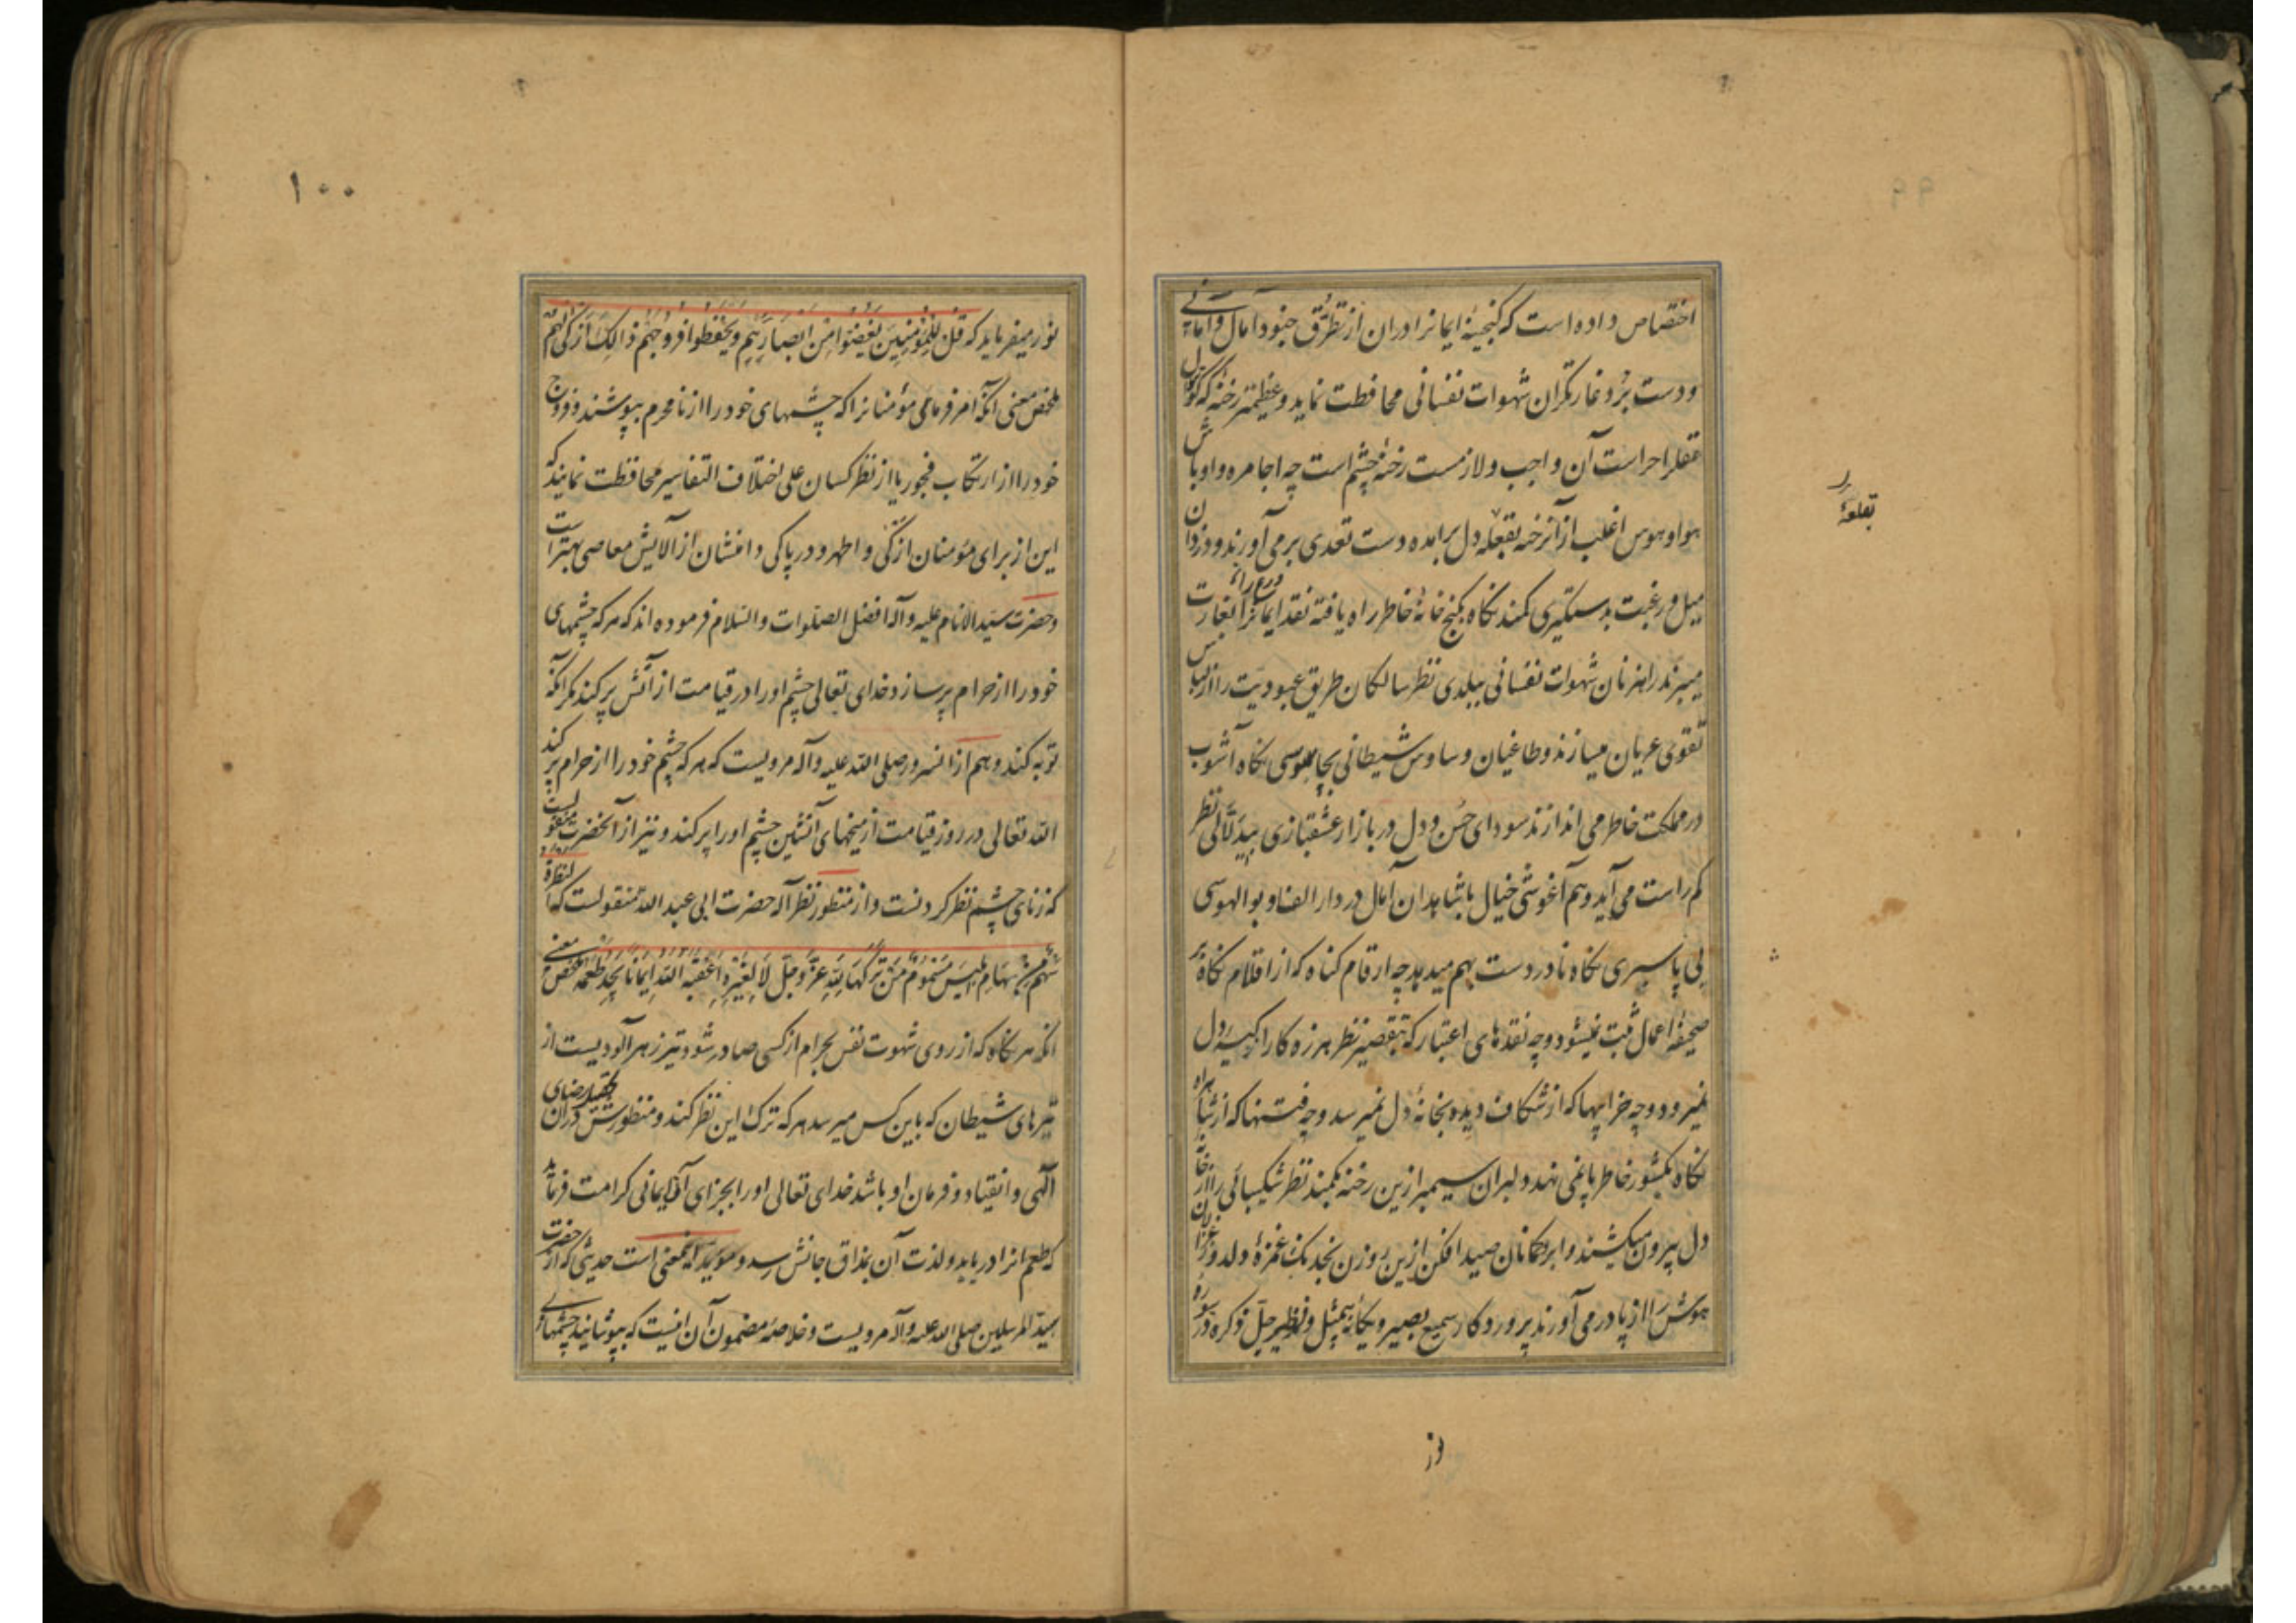 ۹۹
اختصاص داده است که گنجینهٔ ایمانرا دران از تطرق جنود آمال و امانی
و دست برد غارتگران شهوات نفسانی محافظت نماید و عظیمتر رخنهٔ که کوتوال
عقلرا حراست آن واجب و لازمست رخنهٔ چشم است چه اجامره و اوباش
هوا و هوس اغلب از آنرخنه بقلعه دل برامده دست تعدی برمی آورند و دزدان
میل و رغبت بدستگیری کمند نگاه بگنج خانهٔ خاطر راه یافته نقد ایمانرا بغارت
میبرند راهزنان شهوات نفسانی ببلدی نظر سالکان طریق عبودیت را از لباس
تقوی عریان میسازند و طاغیان وساوس شیطانی بجاسوسی نگاه آشوب
در مملکت خاطر می اندازند سودای حسن و دل در بازار عشقبازی بیدلالی نظر
کم راست می آید و هم آغوشی خیال با شاهدان آمال در دار الفناء بو الهوسی
بی پاسبری نگاه نادر دست بهم میدهد چه ارقام گناه که از اقلام نگاه بر
صحیفهٔ اعمال ثبت نمیشود و چه نقدهای اعتبار که بتقصیر نظر هرزه کار از کیسهٔ دل
نمیرود و چه خرابیها که از شکاف دیده بخانهٔ دل نمیرسد و چه فتنها که از شاهراه
نگاه بکشور خاطر پا نمی نهد دلبران سیمبر ازین رخنه بکمند نظر شکیبائی را از خانه
دل بیرون میکشند و ابروکمانان صید افکن ازین روزن بخدنگ غمزهٔ دلدوز غزالان
هوش را از پا در می آورند پروردگار سمیع بصیر و یگانهٔ بیمثل و نظیر جل ذکره در سوره
قلعهٔ
۱۰۰
نور میفرماید که قُل لِلمُؤمِنِینَ یَغُضّوا مِن اَبصارِهِم وَیَحفَظوا فُروجَهُم ذالِکَ اَزکی لَهُم
ملخص معنی آنکه امر فرمای مؤمنانرا که چشمهای خود را از نامحرم بپوشند و فروج
خود را از ارتکاب فجور یا از نظر کسان علی اختلاف التفاسیر محافظت نمایند که
این از برای مؤمنان ازکی و اطهر و در پاکی دامنشان از آلایش معاصی بهتر است
و حضرت سید الانام علیه و آله افضل الصلوات و السلام فرموده اند که هر که چشمهای
خود را از حرام پر سازد خدای تعالی چشم او را در قیامت از آتش پر کند مگر آنکه
توبه کند و هم از آنسرور صلی الله علیه و آله مرویست که هر که چشم خود را از حرام پر کند
الله تعالی در روز قیامت از میخهای آتشین چشم او را پر کند و نیز از آنحضرت منقولست
که زنای چشم نظر کردنست و از منظور نظر آله حضرت ابی عبد الله منقولست که النظرة
سَهم مِن سِهامِ اِبلیسَ مَسمومٌ مَن تَرَکَها لِلّٰهِ عَزَّ وَ جَلَّ لا لِغَیرِهِ اَعقَبَهُ اللهُ ایمانا یَجِدُ طَعمَه ملخص معنی
آنکه هر نگاه که از روی شهوت نفس بحرام از کسی صادر شود تیر زهرآلودیست از
تیرهای شیطان که باین کس میرسد هر که ترک این نظر کند و منظورش دران تحصیل رضای
آلهی و انقیاد و فرمان او باشد خدای تعالی او را بجزای آن ایمانی کرامت فرماید
که طعم انرا دریابد و لذت آن بمذاق جانش رسد و مؤید اینمعنی است حدیثی که از حضرت
سید المرسلین صلی الله علیه و آله مرویست و خلاصهٔ مضمون آن اینست که بپوشانید چشمهای